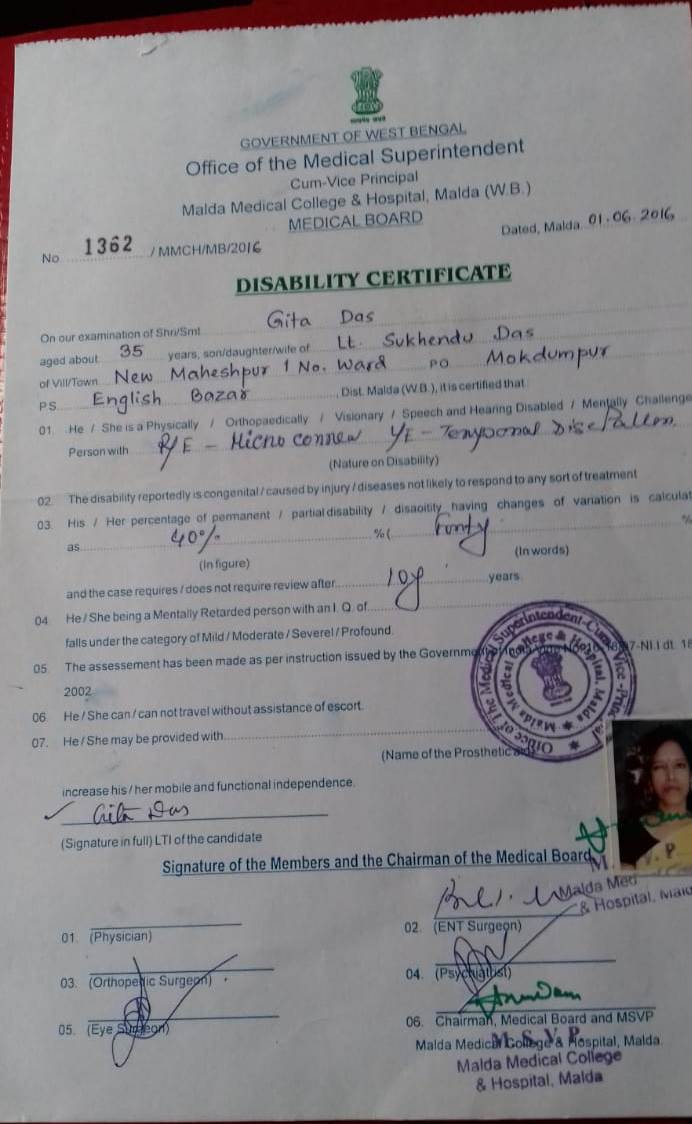 GOVERNMENT OF WEST BENGAL
Office of the Medical Superintendent
Cum-Vice Principal
Malda Medical College & Hospital, Malda (W.B.)
MEDICAL BOARD
No 1362 / MMCH/MB/2016 Dated, Malda 01.06.2016
DISABILITY CERTIFICATE
On our examination of Shri/Smt Gita Das
aged about 35 years, son/daughter/wife of Lt. Sukhendu Das
of Vill/Town New Maheshpur 1 No. Ward PO Mokdumpur
P.S. English Bazar, Dist. Malda (W.B.), it is certified that
01. He / She is a Physically / Orthopaedically / Visionary / Speech and Hearing Disabled / Mentally Challenge
Person with R/E - Micro
(Nature on Disability)
02. The disability reportedly is congenital / caused by injury / diseases not likely to respond to any sort of treatment
03. His / Her percentage of permanent / partial disability / disaoitity having changes of variation is calculat
as 40% %( Forty %
(In figure) (In words)
and the case requires / does not require review after years
04. He / She being a Mentally Retarded person with an I. Q. of
falls under the category of Mild / Moderate / Severel / Profound.
05. The assessement has been made as per instruction issued by the Governme 7-NI.I dt. 18
2002
06. He / She can / can not travel without assistance of escort.
07. He / She may be provided with
(Name of the Prosthetic
increase his / her mobile and functional independence.
Gita Das
(Signature in full) LTI of the candidate
Office of The Medical Superintendent-Cum-Vice-
Malda Medical College & Hospital, Malda
Signature of the Members and the Chairman of the Medical Board
Malda Med
& Hospital, Mald
01. (Physician) 02. (ENT Surgeon)
03. (Orthopedic Surgeon) 04. (Psychiatist)
05. (Eye Surgeon) 06. Chairman, Medical Board and MSVP
Malda Medical College & Hospital, Malda
M. S. V. P.
Malda Medical College
& Hospital, Malda